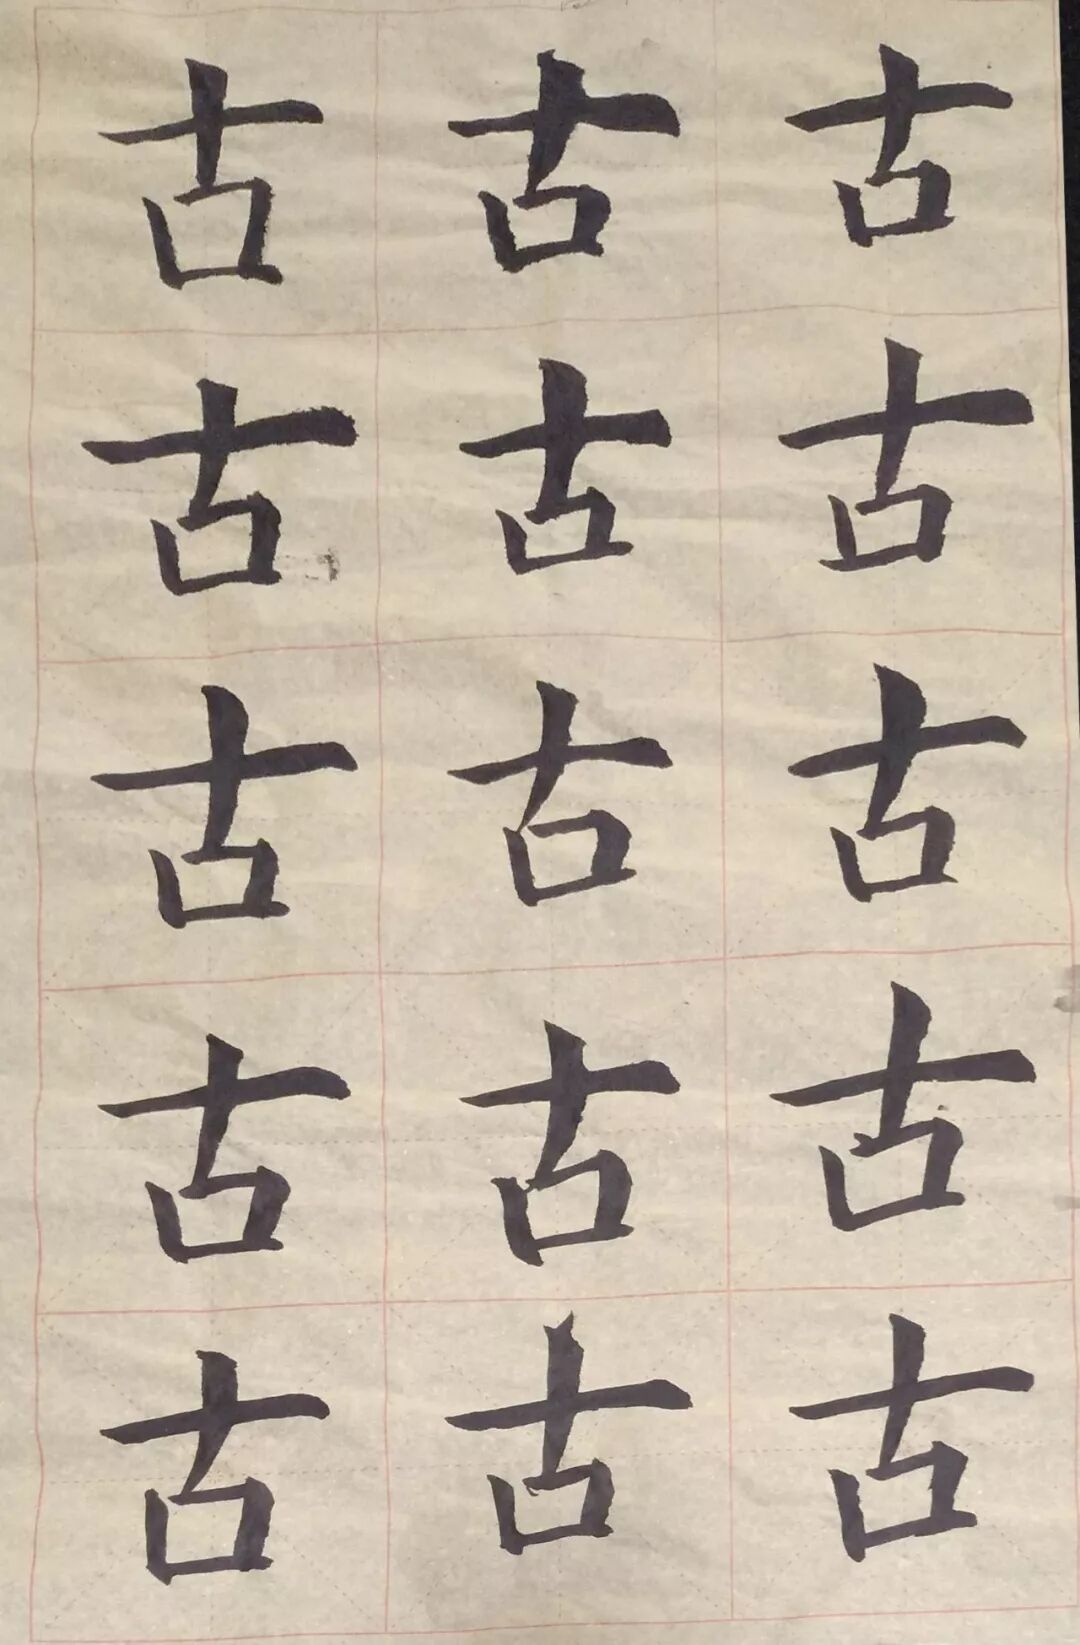 古古古
古古古
古古古
古古古
古古古